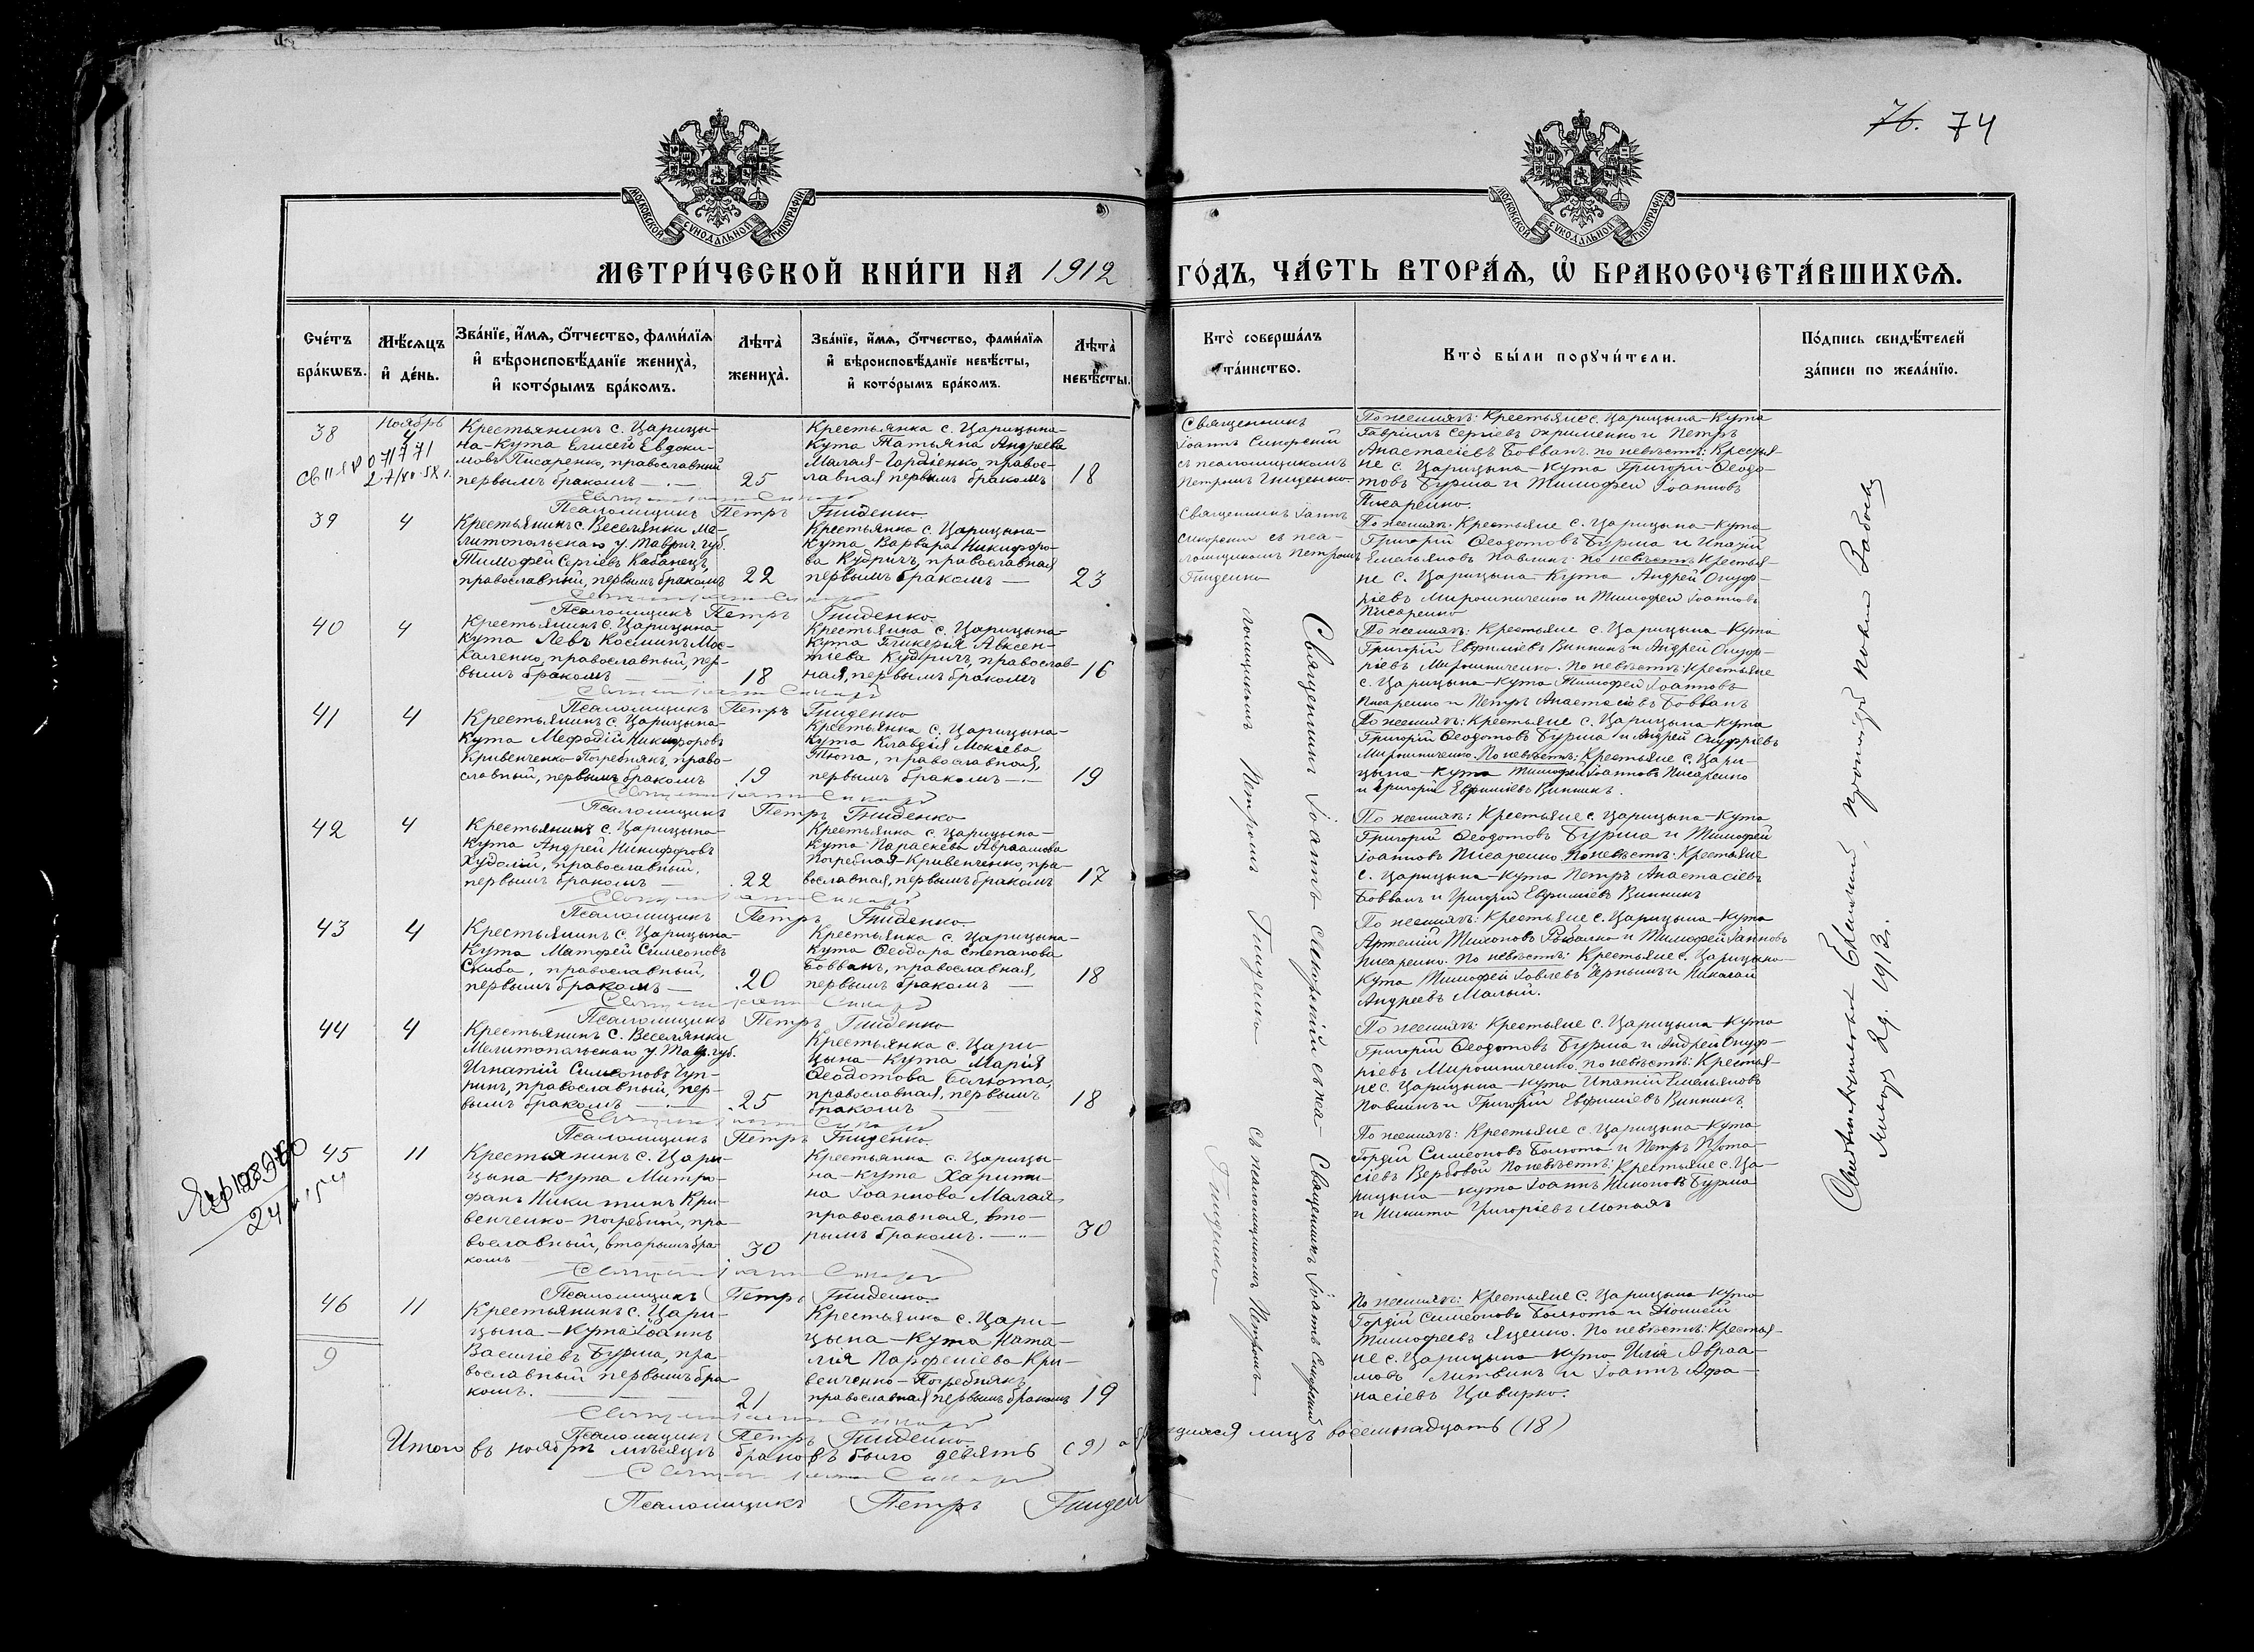 76. 74
МОСКОВСКОЙ СѴНОДАЛЬНОЙ ТИПОГРАФІИ
МОСКОВСКОЙ СѴНОДАЛЬНОЙ ТИПОГРАФІИ
МЕТРИ́ЧЕСКОЙ КНИ́ГИ НА 1912 ГО́ДЪ, ЧА́СТЬ ВТОРА́Ѧ, Ѽ БРАКОСОЧЕТА́ВШИХСѦ.
Сче́тъ
бра́кѡвъ.
Мѣ́сѧцъ
и҆ де́нь.
Зва́нїе, и҆́мѧ, ѻ҆́тчество, фами́лїѧ
и҆ вѣроисповѣ́данїе жениха̀,
и҆ кото́рымъ бра́комъ.
Лѣта̀
жениха̀.
Зва́нїе, и҆́мѧ, ѻ҆́тчество, фами́лїѧ
и҆ вѣроисповѣ́данїе невѣ́сты,
и҆ кото́рымъ бра́комъ.
Лѣта̀
невѣ́сты.
Кто̀ соверша́лъ
та́инство.
Кто̀ бы́ли порꙋчи́тели.
По́дпись свидѣ́телей
за́писи по жела́нїю.
38
Ноябрь
4
Крестьянинъ с. Царицы-
на-Кута Елисей Евдоки-
мовъ Писаренко, православный
первымъ бракомъ
25
Крестьянка с. Царицына-
Кута Татьяна Андреева
Малая-Гордіенко, правос-
лавная первымъ бракомъ
18
Священникъ
Іоаннъ
съ псаломщикомъ
Петромъ Гниденко.
По женихѣ: Крестьяне с. Царицына-Кута
Гавріилъ Сергіевъ Охрименко и Петръ
Анастасіевъ Бовванъ. по невѣстѣ: Крестья-
не с. Царицына-Кута Григорій Ѳеодо-
товъ Бурма и Тимофей Іоанновъ
Писаренко.
Псаломщикъ Петръ Гниденко
39
4
Крестьянинъ с. Веселянки Ме-
литопольскаго у. Таврич. губ.
Тимофей Сергіевъ Кабанецъ,
православный, первымъ бракомъ
22
Крестьянка с. Царицына-
Кута Варвара Никифоро-
ва Кудричъ, православная
первымъ бракомъ
23
Священникъ Іоаннъ
съ пса-
ломщикомъ Петромъ
Гниденко
По женихѣ: Крестьяне с. Царицына-Кута
Григорій Ѳеодотовъ Бурма и Ипатій
Емельяновъ Павликъ. по невѣстѣ: Крестья-
не с. Царицына-Кута Андрей Онуф-
ріевъ Мирошниченко и Тимофей Іоанновъ
Писаренко
Псаломщикъ Петръ Гниденко
40
4
Крестьянинъ с. Царицына-
Кута Левъ Косминъ Мос-
каленко, православный, пер-
вымъ бракомъ
18
Крестьянка с. Царицына-
Кута Гликерія Авксен-
тіева Кудричъ, православ-
ная, первымъ бракомъ
16
По женихѣ: Крестьяне с. Царицына-Кута
Григорій Евфиміевъ Винникъ и Андрей Онуф-
ріевъ Мирошниченко. по невѣстѣ: Крестьяне
с. Царицына-Кута Тимофей Іоанновъ
Писаренко и Петръ Анастасіевъ Бовванъ
Псаломщикъ Петръ Гниденко
41
4
Крестьянинъ с. Царицына-
Кута Мефодій Никифоровъ
Кривенченко-Погребнякъ, право-
славный, первымъ бракомъ
19
Крестьянка с. Царицына-
Кута Клавдія Мокіева
Тюпа, православная,
первымъ бракомъ
19
По женихѣ: Крестьяне с. Царицына-Кута
Григорій Ѳеодотовъ Бурма и Андрей Онуфріевъ
Мирошниченко. По невѣстѣ: Крестьяне с. Цари-
цына-Кута Тимофей Іоанновъ Писаренко
и Григорій Евфиміевъ Винникъ.
Псаломщикъ Петръ Гниденко
42
4
Крестьянинъ с. Царицына-
Кута Андрей Никифоровъ
Худолій, православный,
первымъ бракомъ
22
Крестьянка с. Царицына-
Кута Параскева Авраамова
Погребная-Кривенченко, пра-
вославная, первымъ бракомъ
17
По женихѣ: Крестьяне с. Царицына-Кута
Григорій Ѳеодотовъ Бурма и Тимофей
Іоанновъ Писаренко. По невѣстѣ: Крестьяне
с. Царицына-Кута Петръ Анастасіевъ
Бовванъ и Григорій Евфиміевъ Винникъ
Псаломщикъ Петръ Гниденко
43
4
Крестьянинъ с. Царицына-
Кута Матфей Симеоновъ
Скиба, православный,
первымъ бракомъ
20
Крестьянка с. Царицына-
Кута Ѳеодора Степанова
Бовванъ, православная,
первымъ бракомъ
18
По женихѣ: Крестьяне с. Царицына-Кута
Артемій Тихоновъ Рыбалко и Тимофей Іоанновъ
Писаренко. По невѣстѣ: Крестьяне с. Царицына-
Кута Тимофей Іовлевъ Чернышъ и Николай
Андреевъ Малый.
Псаломщикъ Петръ Гниденко
44
4
Крестьянинъ с. Веселянки
Мелитопольскаго у. Тавр. губ.
Игнатій Симеоновъ Чуп-
ринъ, православный, пер-
вымъ бракомъ
25
Крестьянка с. Цари-
цына-Кута Марія
Ѳеодотова Балюта,
православная, первымъ
бракомъ
18
По женихѣ: Крестьяне с. Царицына-Кута
Григорій Ѳеодотовъ Бурма и Андрей Онуф-
ріевъ Мирошниченко. по невѣстѣ: Крестья-
не с. Царицына-Кута Ипатій Емельяновъ
Павликъ и Григорій Евфиміевъ Винникъ.
Псаломщикъ Петръ Гниденко.
45
11
Крестьянинъ с. Цари-
цына-Кута Митро-
фанъ Никитинъ Кри-
венченко-Погребной, пра-
вославный, вторымъ бра-
комъ
30
Крестьянка с. Царицы-
на-Кута Харити-
на Іоаннова Малая,
православная, вто-
рымъ бракомъ.
30
По женихѣ: Крестьяне с. Царицына-Кута
Гордій Симеоновъ Балюта и Петръ Прота-
сіевъ Вербовой По невѣстѣ: Крестьяне с. Ца-
рицына-Кута Іоаннъ Никоновъ Бурма
и Никита Григоріевъ
Псаломщикъ Петръ Гниденко.
46
11
Крестьянинъ с. Цари-
цына-Кута Іоаннъ
Василіевъ Бурма, пра-
вославный первымъ бра-
комъ.
21
Крестьянка с. Цари-
цына-Кута Ната-
лія Парфеніева Кри-
венченко-Погребнякъ,
православная первымъ бракомъ
19
По женихѣ: Крестьяне с. Царицына-Кута
Гордій Симеоновъ Балюта и Діонисій
Тимофеевъ Яценко. По невѣстѣ: Крестья-
не с. Царицына-Кута Илія Авраа-
мовъ Литвинъ и Іоаннъ Афа-
насіевъ Цавирко.
9
Псаломщикъ Петръ Гниденко
Итого въ ноябрѣ мѣсяцѣ браковъ было девять (9) лицъ восемнадцать (18)
Псаломщикъ Петръ Гниден
Священникъ Іоаннъ съ пса-
ломщикомъ Петромъ Гниденко
Священникъ Іоаннъ
съ псаломщикомъ Петромъ
Гниденко
1913 г.